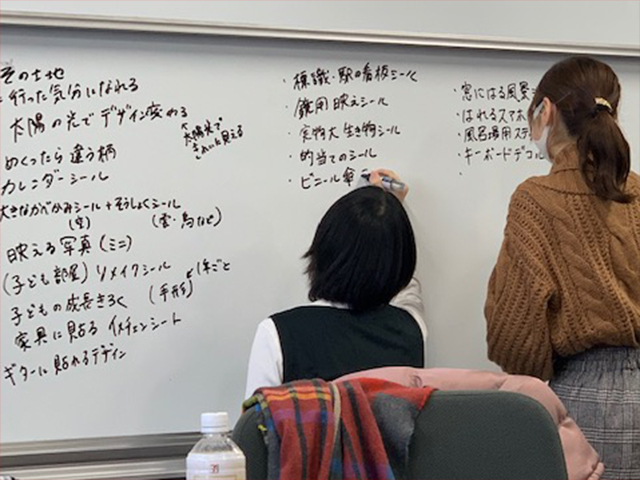 その土地
行った気分になれる
太陽の光でデザイン変わる
太陽光で
きれいに見える
めくったら違う柄
カレンダーシール
大きなかべがみシール+そうしょくシール
(空)
(雲・鳥など)
映える写真(ミニ)
(子ども部屋)リメイクシール
子どもの成長きろく
(手形)
1年ごと
家具に貼るイメチェンシート
ギターに貼れるデザイン
・標識・駅の看板シール
・鏡用映えシール
・実物大生き物シール
・的当てのシール
・ビニール傘
・窓にはる風景
・はれるスマホ
・風呂場用ステ
・キーボードデコ